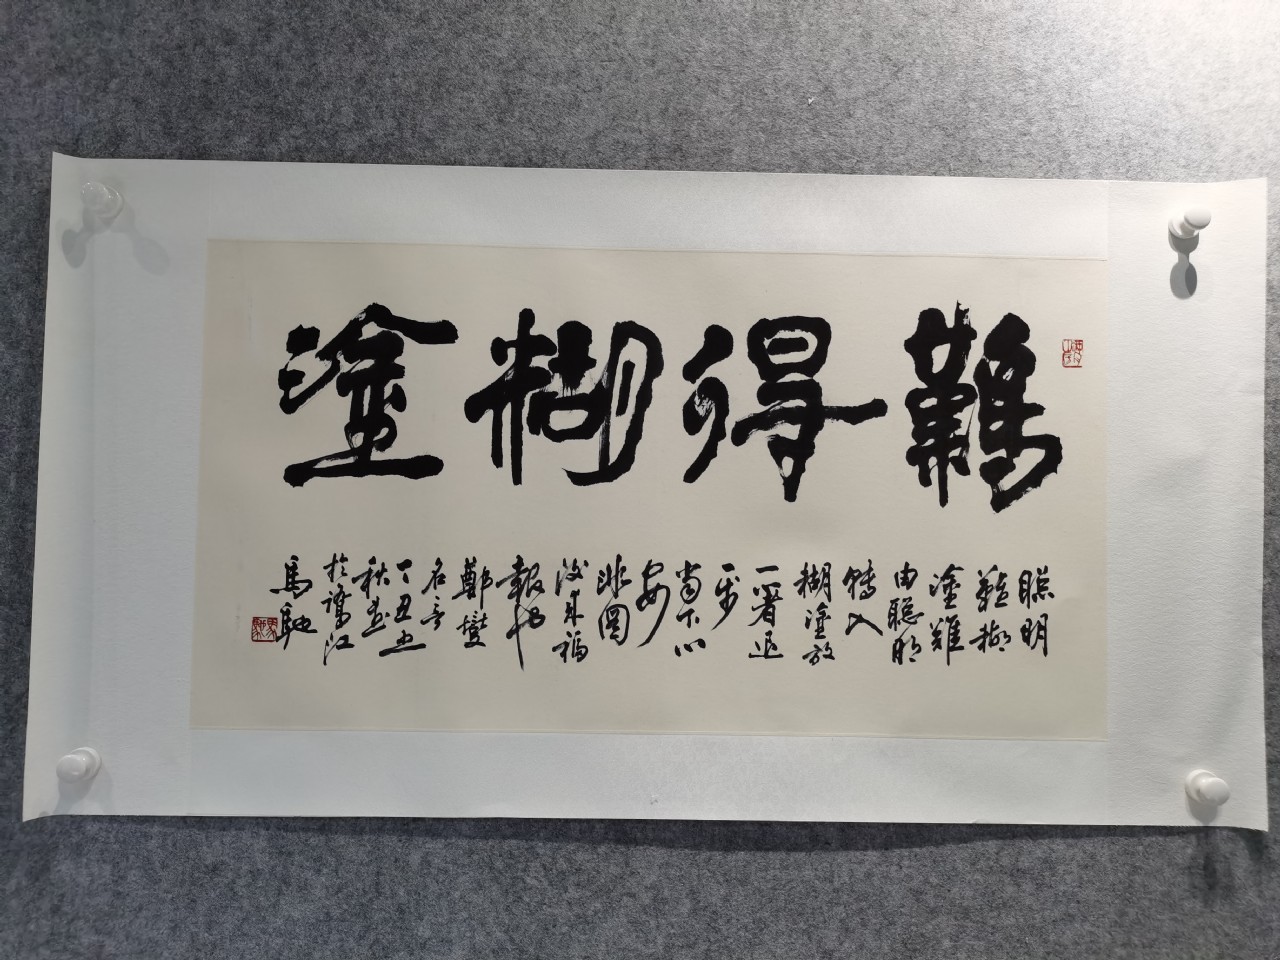 難得糊塗
聰明
難糊
塗難
由聰明
轉入
糊塗放
一著退
一步
當下心
安
非圖
後來福
報也
鄭燮
名言
丁丑之
秋書
於江
馬馳